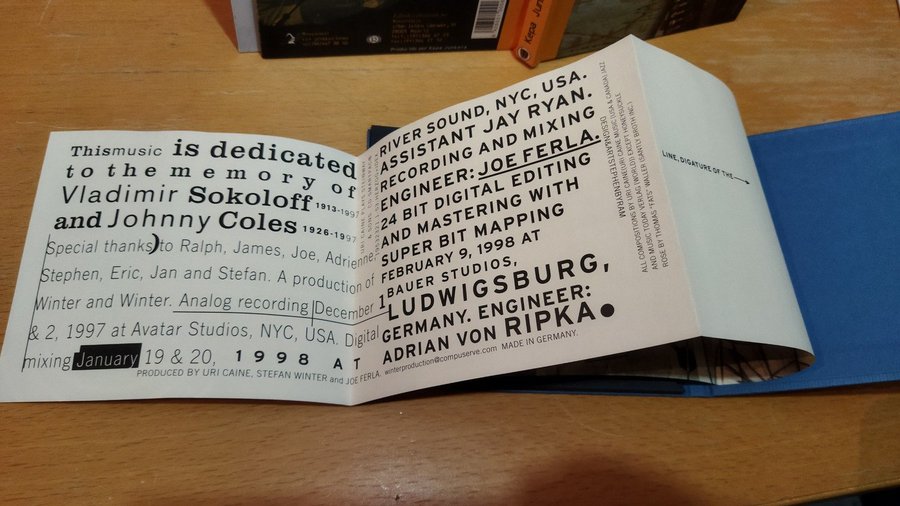 Thismusic is dedicated
to the memory of
Vladimir Sokoloff 1913-1997
and Johnny Coles 1926-1997
Special thanks to Ralph, James, Joe, Adrienne,
Stephen, Eric, Jan and Stefan. A production of
Winter and Winter. Analog recording December 1
& 2, 1997 at Avatar Studios, NYC, USA. Digital
mixing January 19 & 20, 1998 AT
PRODUCED BY URI CAINE, STEFAN WINTER and JOE FERLA.
RIVER SOUND, NYC, USA.
ASSISTANT JAY RYAN.
RECORDING AND MIXING
ENGINEER: JOE FERLA.
24 BIT DIGITAL EDITING
AND MASTERING WITH
SUPER BIT MAPPING
FEBRUARY 9, 1998 AT
BAUER STUDIOS,
LUDWIGSBURG,
GERMANY. ENGINEER:
ADRIAN VON RIPKA
winterproduction@compuserve.com MADE IN GERMANY.
DESIGN&ARTSTEPHENBYRAM
ALL COMPOSITIONS BY URI CAINE(URI CAINE MUSIC/USA & CANADA/JAZZ
AND MUSIC TODAY VERLAG/WORLD) EXCEPT HONEYSUCKLE
ROSE BY THOMAS "FATS" WALLER (SANTLY BROTH INC.)
LINE, DIGATURE OF THE
Kepa Jun